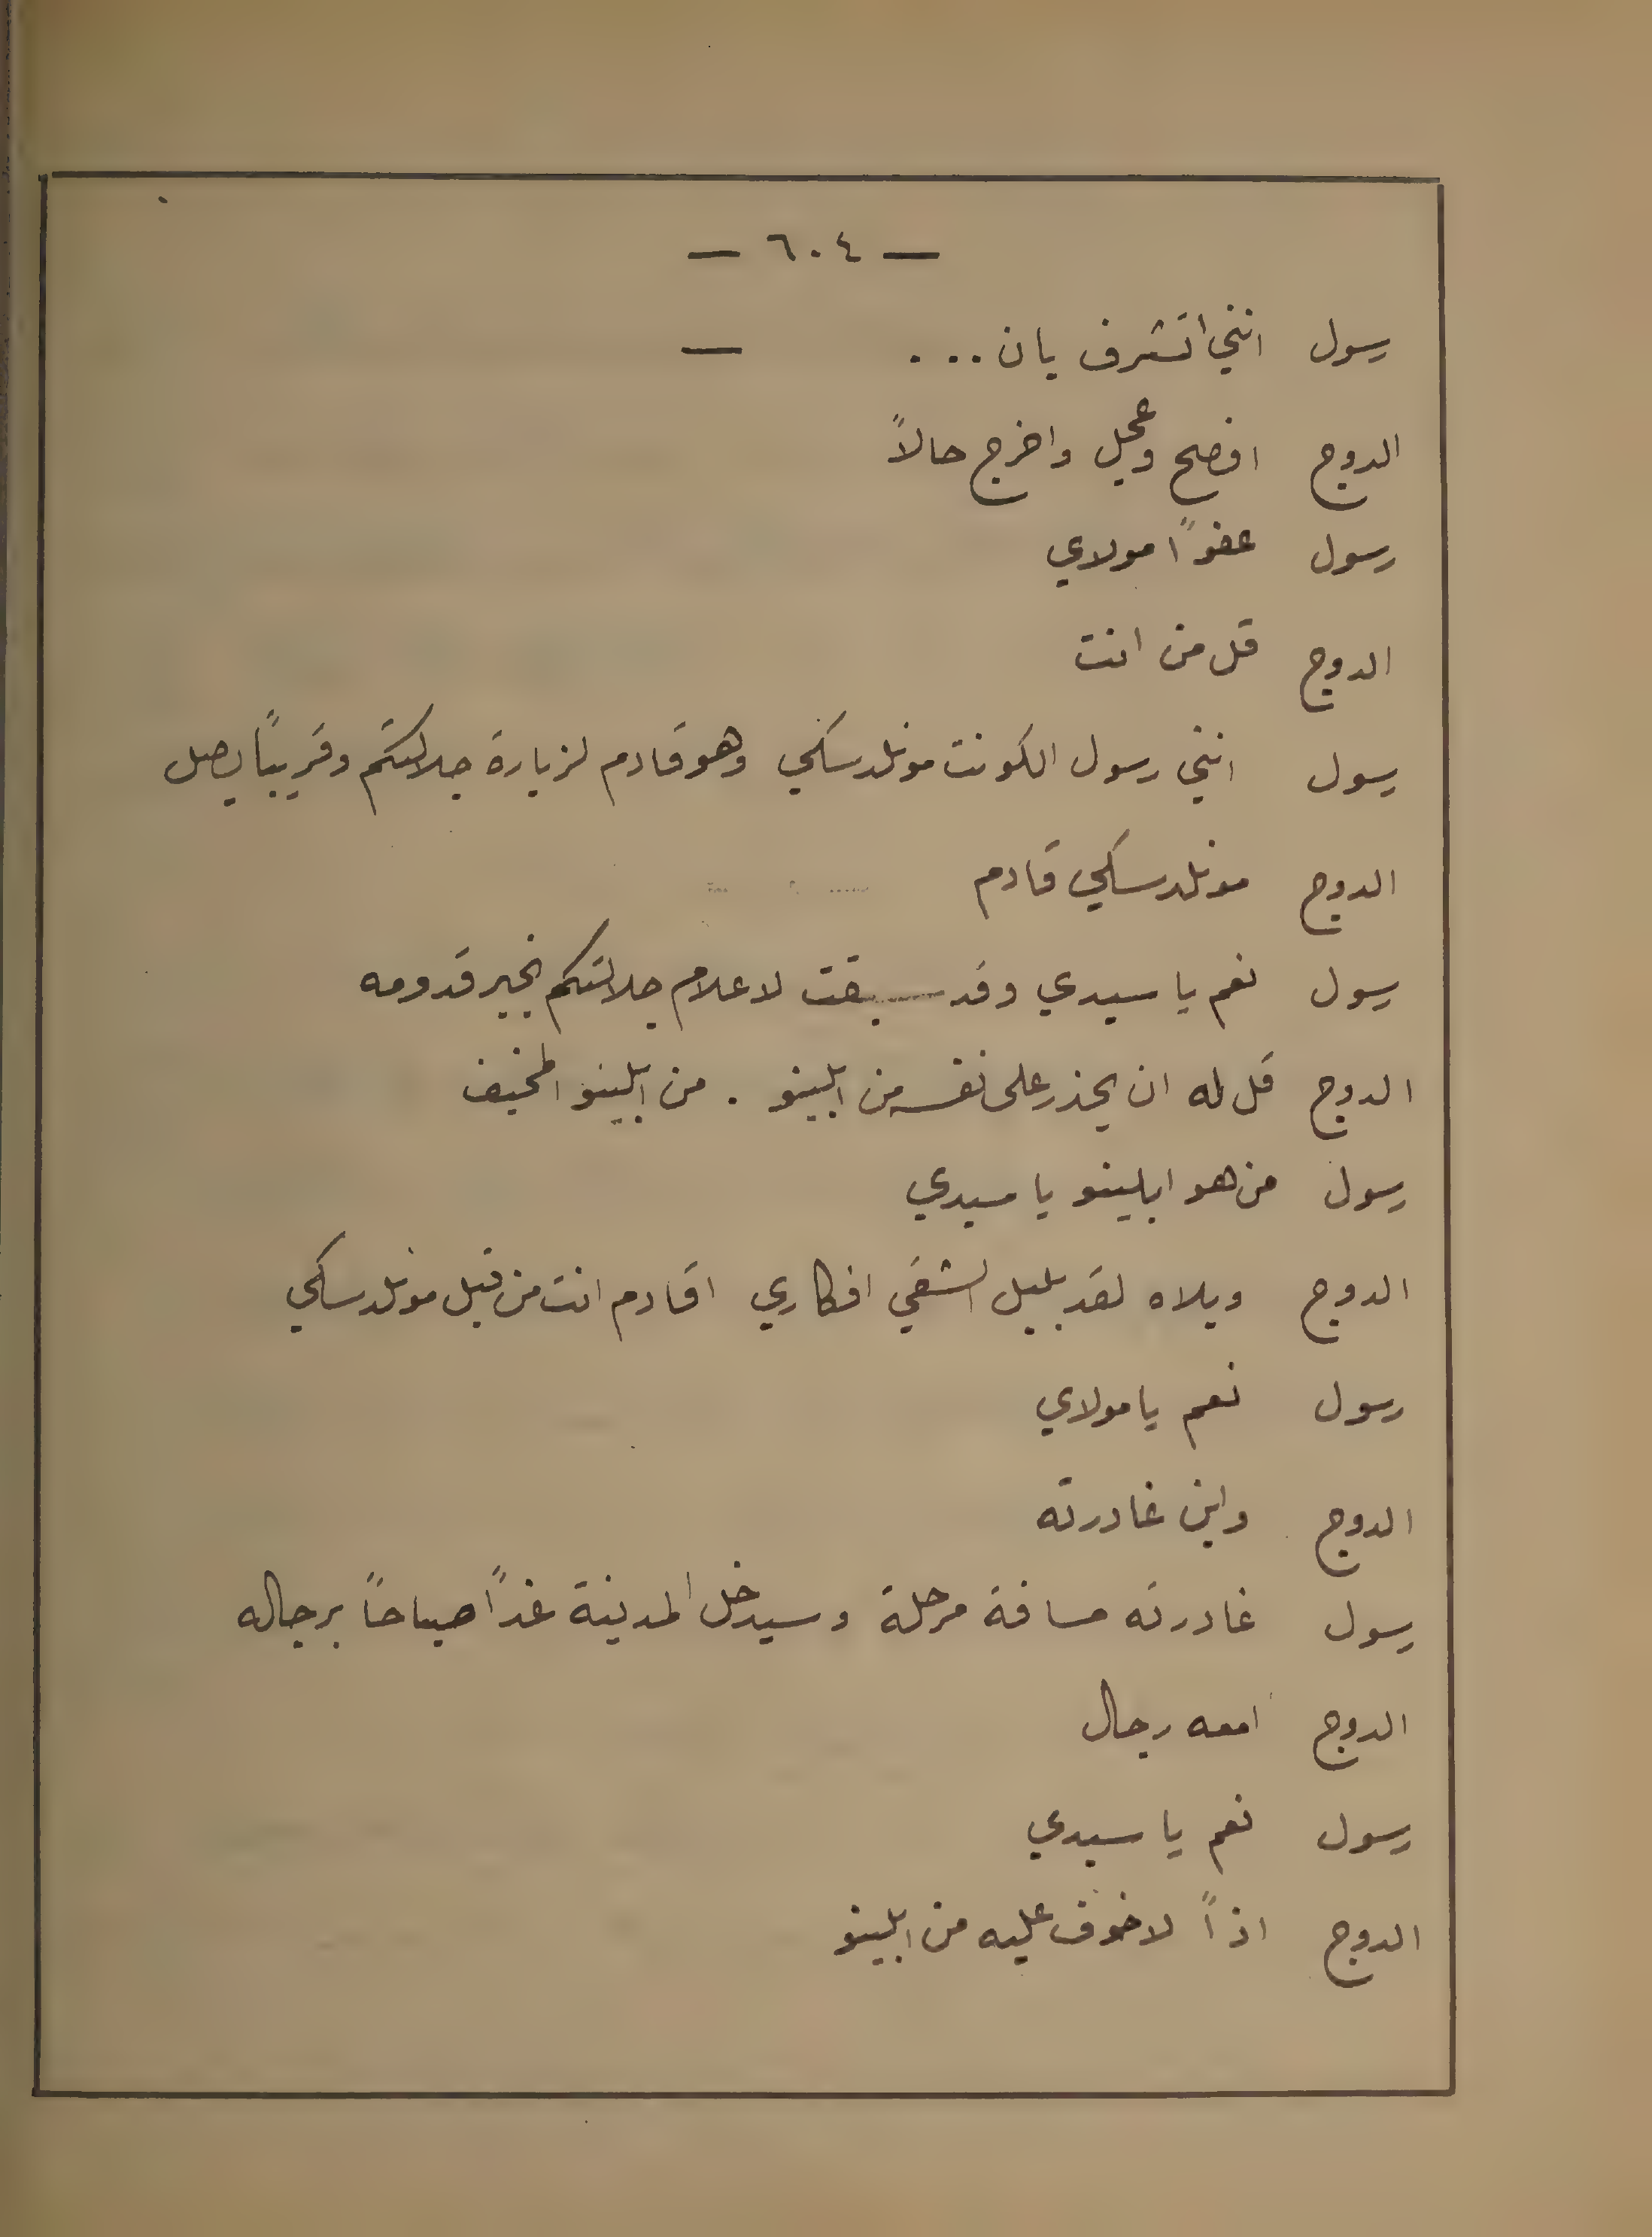 — ٦٠٤ —
رسول انني اتشرف بان ... —
الدوج افصح وعجل واخرج حالاً
رسول عفواً مولاي
الدوج قل من انت
رسول انني رسول الكونت مونلدسكي وهو قادم لزيارة جلالتكم وقريباً يصل
الدوج مونلدسكي قادم
رسول نعم يا سيدي وقد سبقت لاعلام جلالتكم بخبر قدومه
الدوج قل له ان يحذر على نفسه من ابلينو . من ابلينو المخيف
رسول من هو ابلينو يا سيدي
الدوج ويلاه لقد بلبل الشقي افكاري اقادم انت من قبل مونلدسكي
رسول نعم يا مولاي
الدوج واين غادرته
رسول غادرته مسافة مرحلة وسيدخل المدينة غداً صباحاً برجاله
الدوج امعه رجال
رسول نعم يا سيدي
الدوج اذاً لا خوف عليه من ابلينو